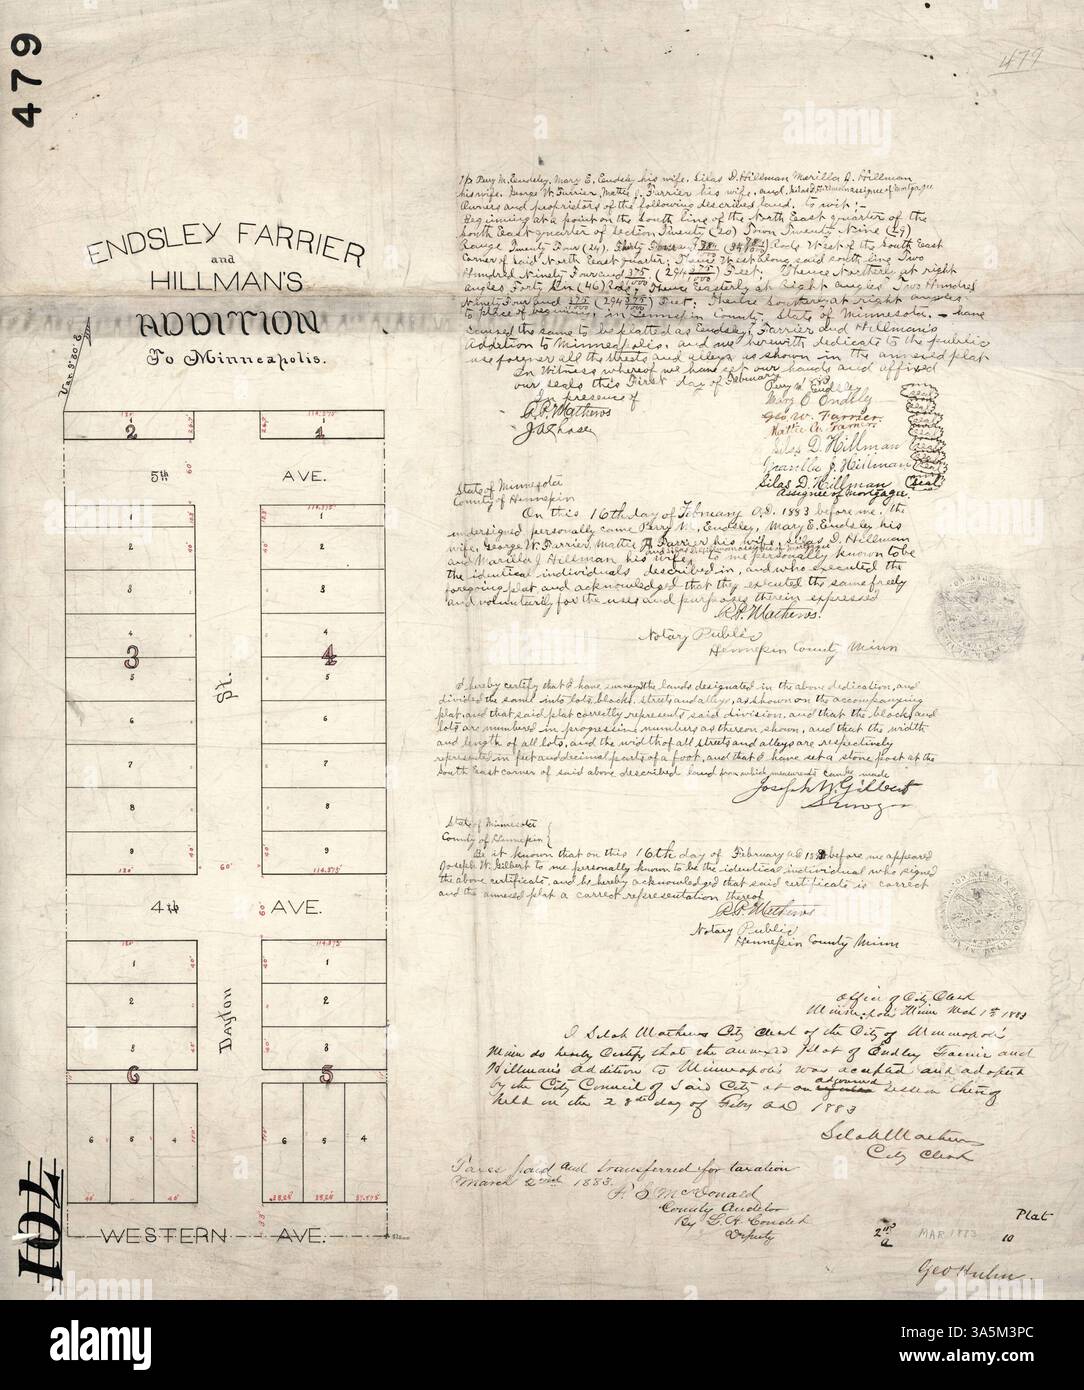 479
479
ENDSLEY FARRIER
and
HILLMAN'S
ADDITION
To Minneapolis.
Var 9°50' E
2
1
5th AVE.
1
1
2
2
3
3
4
4
3
4
5
5
6
6
7
7
8
8
9
9
120'
60'
114.375'
St.
4th AVE.
60'
120'
114.375'
1
1
2
2
3
3
Dayton
6
5
6 5 4
6 5 4
40'
38.25' 38.25' 37.875'
33'
WESTERN AVE.
701
I/We Perry M. Endsley, Mary E. Endsley his wife, Silas D. Hillman Marilla J. Hillman
his wife, George W. Farrier, Mattie J. Farrier his wife, and, Silas D. Hillman assignee of Mortgage
Owners and proprietors of the following described land, to wit:-
Beginning at a point on the South line of the North East quarter of the
South East quarter of Section Twenty (20) Town Twenty Nine (29)
Range Twenty Four (24), Thirty Four and Rods West of the South East
Corner of Said North East quarter; Thence West along said south line Two
Hundred Ninety Four and 375/1000 (294 375/1000) Feet; Thence Northerly at right
angles Forty Six (46) Rods; Thence Easterly at Right angles Two Hundred
Ninety Four and 375/1000 (294 375/1000) Feet; Thence Southerly at right angles
to place of beginning, in Hennepin County, State of Minnesota. - have
caused the same to be platted as Endsley, Farrier and Hillman's
Addition to Minneapolis, and we herewith dedicate to the public
use forever all the streets and alleys as shown in the annexed plat
In Witness whereof we have set our hands and affixed
our seals this First day of February
In presence of
R.P. Mathews
J.A. Chase
Perry M. Endsley seal
Mary E Endsley seal
Geo. W. Farrier seal
Mattie J. Farrier seal
Silas D. Hillman seal
Marilla J. Hillman seal
Silas D. Hillman seal
assignee of Mortgage.
State of Minnesota
County of Hennepin
On this 16th day of February A.D. 1883 before me, the
undersigned personally came Perry M. Endsley, Mary E. Endsley his
wife, George W. Farrier, Mattie J. Farrier his wife, Silas D. Hillman
and Marilla J. Hillman his wife, and Silas D. Hillman assignee of mortgage to me personally known to be
the identical individuals described in, and who executed the
foregoing plat, and acknowledged that they executed the same freely
and voluntarily for the uses and purposes therein expressed
R.P. Mathews.
Notary Public
Hennepin County Minn
I hereby certify that I have surveyed the lands designated in the above dedication, and
divided the same into lots, blocks, streets and alleys, as shown on the accompanying
plat, and that said plat correctly represents said division, and that the blocks and
lots are numbered in progressive numbers as thereon shown, and that the width
and length of all lots, and the width of all streets and alleys are respectively
represented in feet and decimal parts of a foot, and that I have set a stone post at the
South East corner of said above described land from which measurements can be made
Joseph W. Gilbert
Surveyor
State of Minnesota
County of Hennepin
Be it known that on this 16th day of February A.D. 1883 before me appeared
Joseph W. Gilbert to me personally known to be the identical individual who signed
the above certificate, and he hereby acknowledged that said certificate is correct
and the annexed plat a correct representation thereof
R.P. Mathews
Notary Public
Hennepin County Minn
Office of City Clerk
Minneapolis Minn Mch 1st 1883
I Selah Mathews City Clerk of the City of Minneapolis
Minn do hereby Certify that the annexed Plat of Endsley Farrier and
Hillman's Addition to Minneapolis was accepted and adopted
by the City Council of Said City at an adjourned session thereof
held on the 28th day of Feby A.D 1883
Selah Mathews
City Clerk
Taxes paid and transferred for taxation
March 2nd 1883.
H S McDonald
County Auditor
By
Deputy
Plat
2nd MAR 1883 10
a
Geo Huhn
alamy
Image ID: 3A5M3PC
www.alamy.com